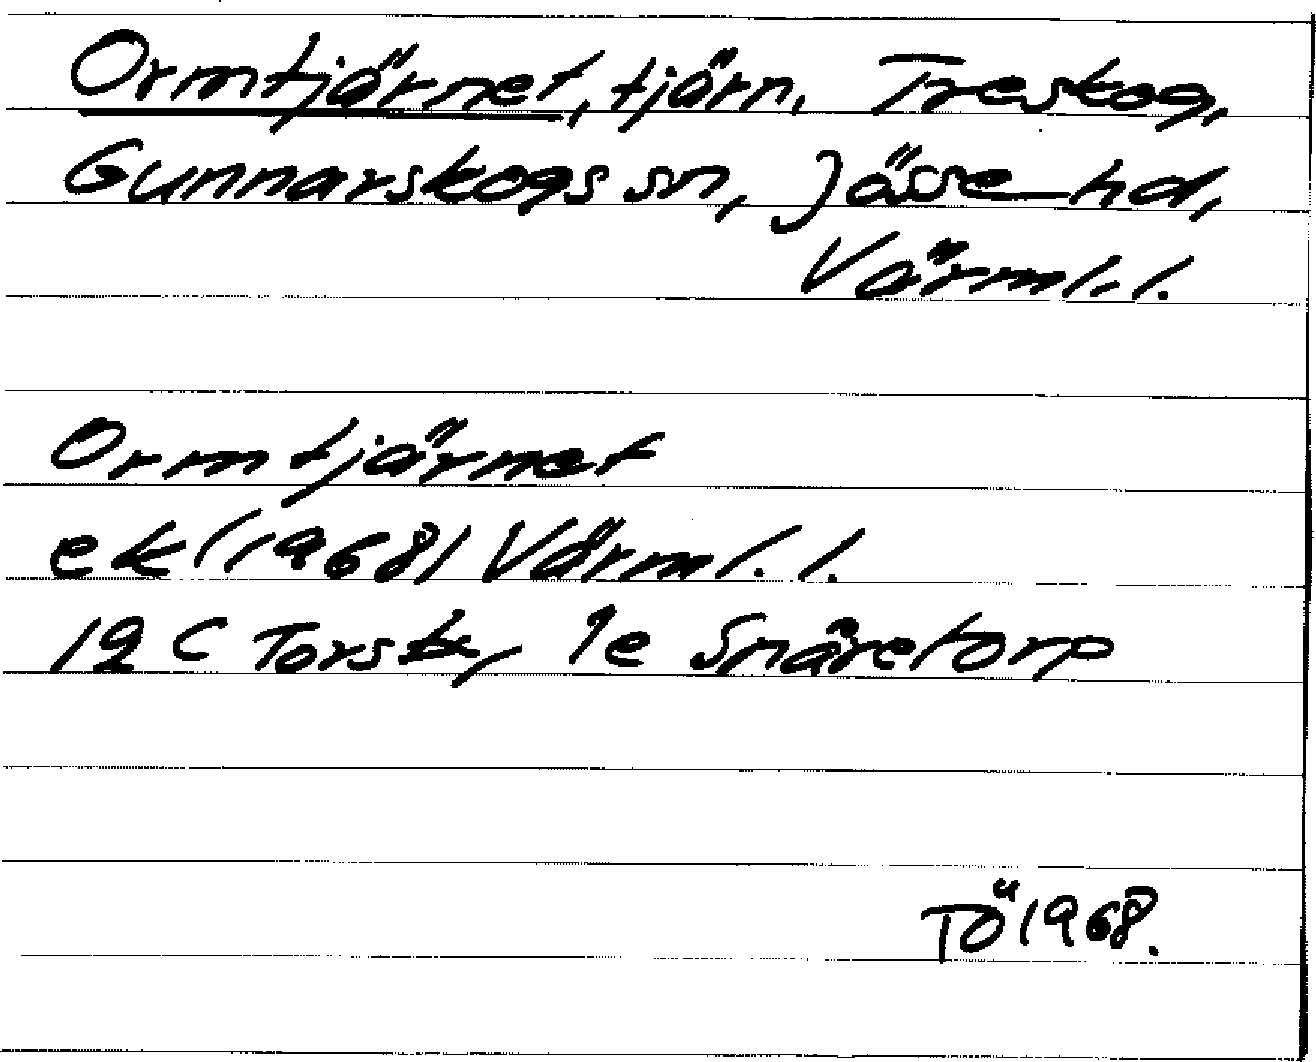 Ormtjärnet, tjärn, Treskog,
Gunnarskogs sn, Jösse hd,
Värml. l.
Ormtjärnet
ek (1968) Värml. l.
12 C Torsby 1e Snäretorp
TÖ 1968.